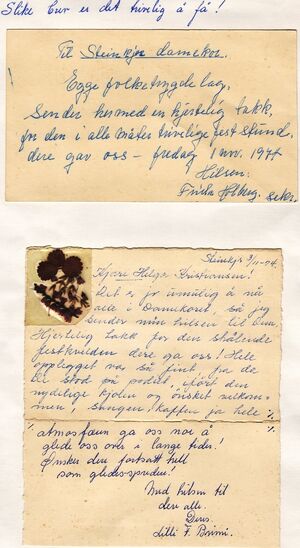 Slike brev er det triveleg å få!
Til Steinkjer damekor.
Egge folketrygdelag,
Sender hermed en hjertelig takk,
for den i alle måter trivelige fest stund,
dere gav oss - fredag 1 nov. 1974
Hilsen.
Frida Holberg. sekr.
Steinkjer 3/11-74.
Kjære Helga Kristiansen!
Det er jo umulig å nå
alle i Damekoret, så jeg
sender min hilsen til Dem.
Hjertelig takk for den strålende
festkvelden dere ga oss! Hele
opplegget var så fint, fra da
De stod på podiet, iført den
nydelige kjolen og ønsket velkom-
men, Sangen, kaffen ja hele %
% atmosfæren ga oss noe å
glede oss over i lange tider!
Ønsker dere fortsatt hell
som gledesspredere!
Med hilsen til
dere alle.
Deres.
Lilli F. Brimi.